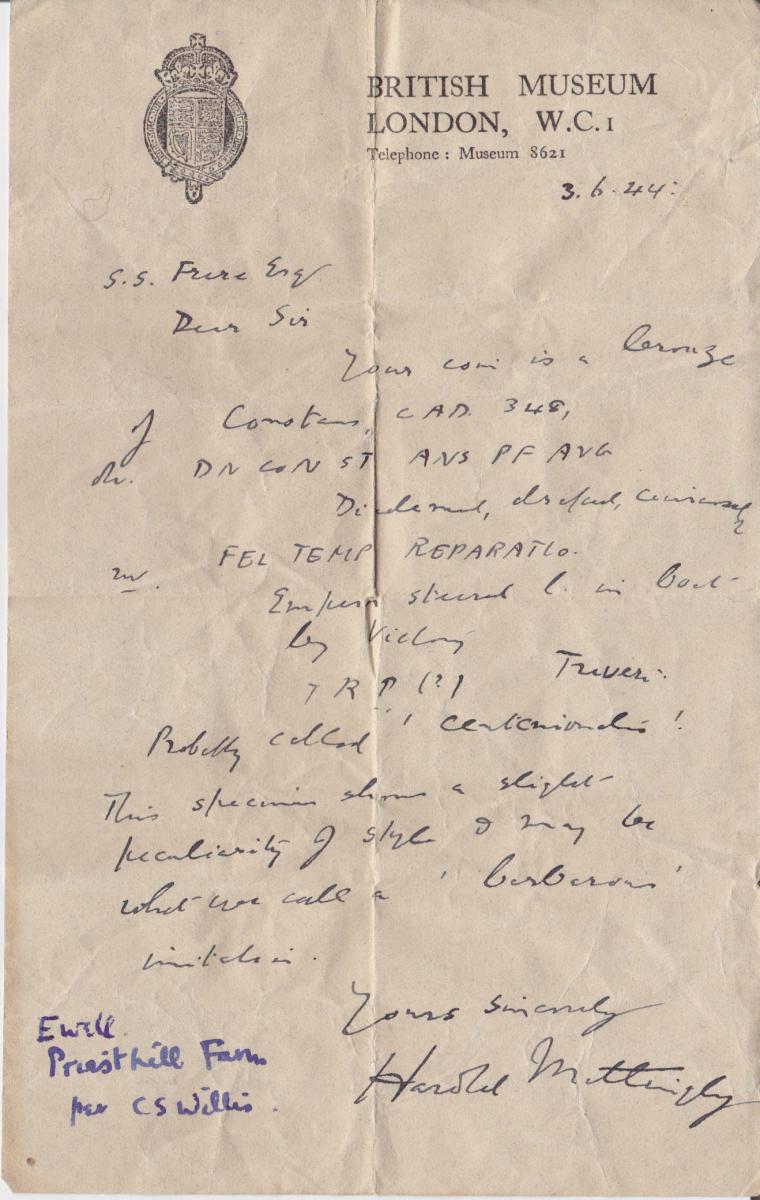 BRITISH MUSEUM
LONDON, W.C.1
Telephone : Museum 8621
3.6.44.
S.S. Frere Esq
Dear Sir
Your coin is a bronze
of Constans, C A.D. 348,
obv. DN CONST ANS PF AVG
Diademed, draped, cuirassed
rev. FEL TEMP REPARATIO.
Emperor steered l. in boat
by Victory
TRP (?) Treveri.
Probably called 'centenionalis'.
This specimen shows a slight
peculiarity of style & may be
what we call a 'barbarous'
imitation.
Yours sincerely
Harold Mattingly
Ewell.
Priesthill Farm
per C S Willis.